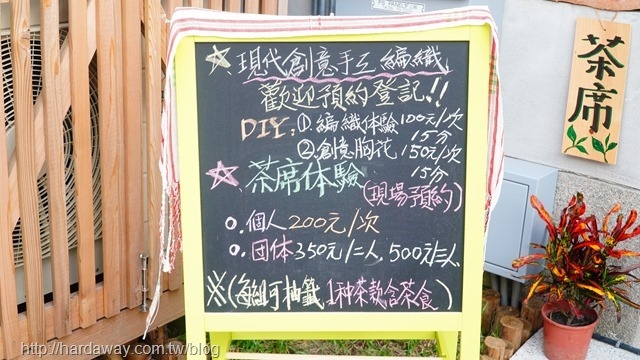 ☆現代創意手工編織
歡迎預約登記!!
DIY:①編織体驗100元/次
15分
②創意胸花150元/次
15分
☆茶席体驗
(現場預約)
o.個人200元/次
o.団体350元/二人,500元/三人
※(每組可抽籤1种茶款含茶食)
茶席
http://hardaway.com.tw/blog